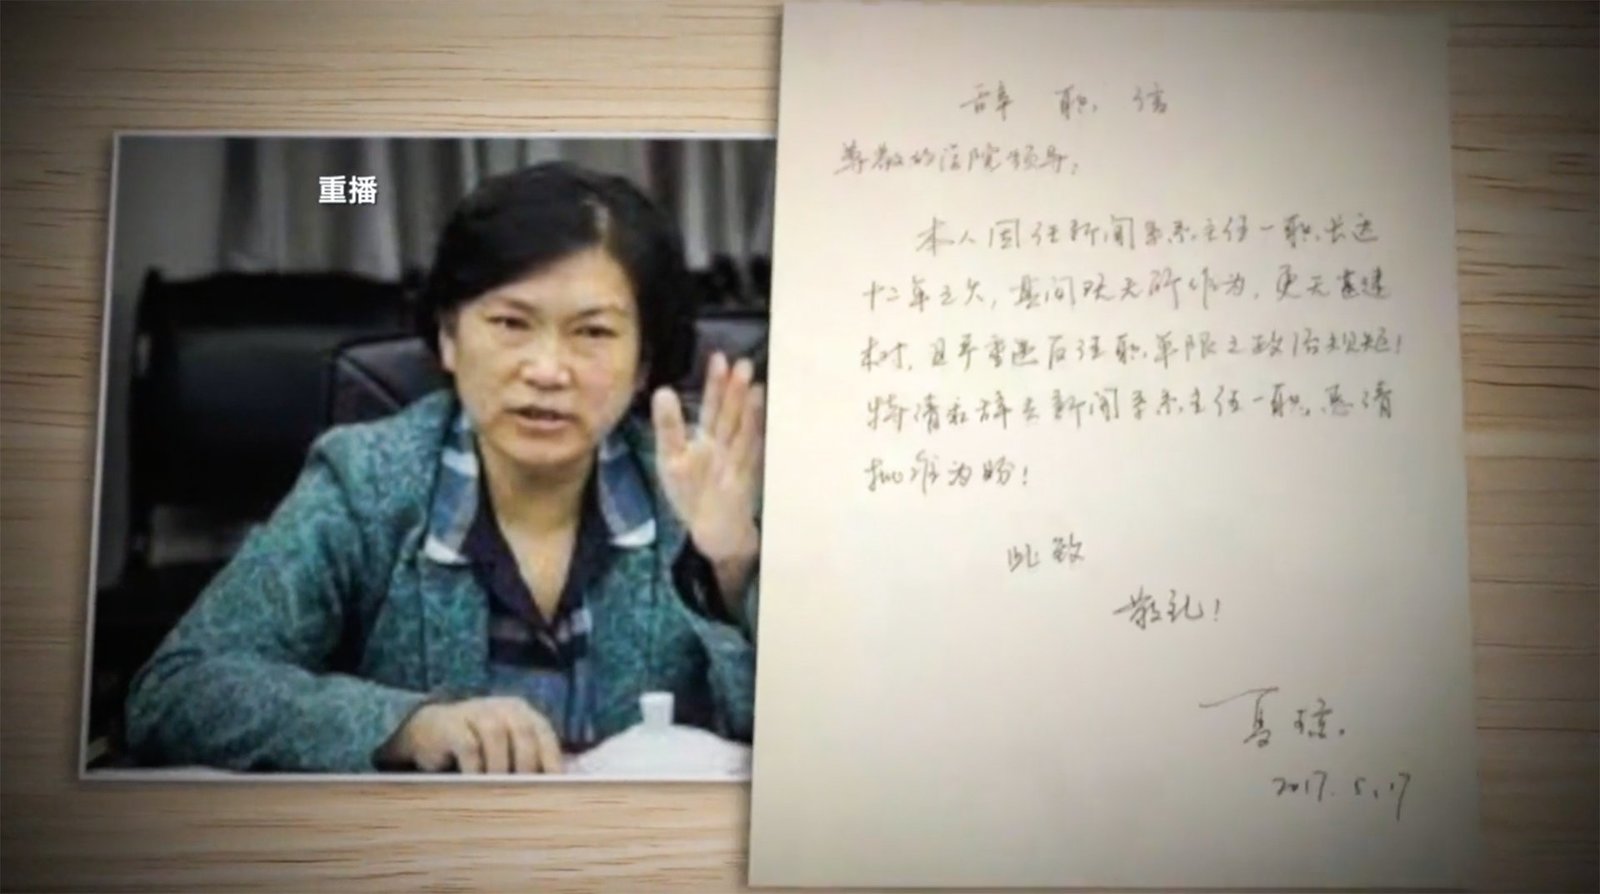 重播
辞 职 信
尊敬的学院领导：
本人因任新闻系系主任一职长达
十二年之久，其间既无所作为，更无甚建
树，且严重违反任职年限之政治规矩！
特请求辞去新闻系系主任一职，恳请
批准为盼！
此致
敬礼！
夏琼
2017.5.17